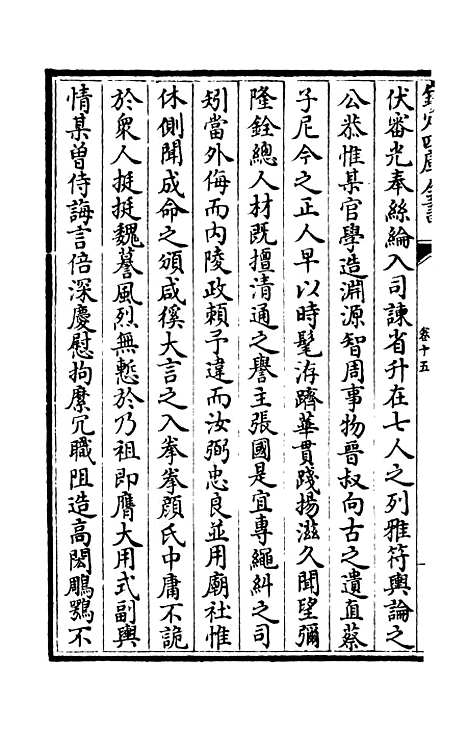 欽定四庫全書
卷十五
伏審光奉絲綸入司諫省升在七人之列雅符輿論之
公恭惟某官學造淵源智周事物晉叔向古之遺直蔡
子尼今之正人早以時髦洊躋華貫踐揚滋久聞望彌
隆銓總人材既擅清通之譽主張國是宜專繩糾之司
矧當外侮而内陵政頼予違而汝弼忠良並用廟社惟
休側聞成命之頒咸徯大言之入拳拳顔氏中庸不詭
於衆人挺挺魏謩風烈無慙於乃祖即膺大用式副輿
情某曽侍誨言倍深慶慰拘縻冗職阻造高閎鵰鶚不